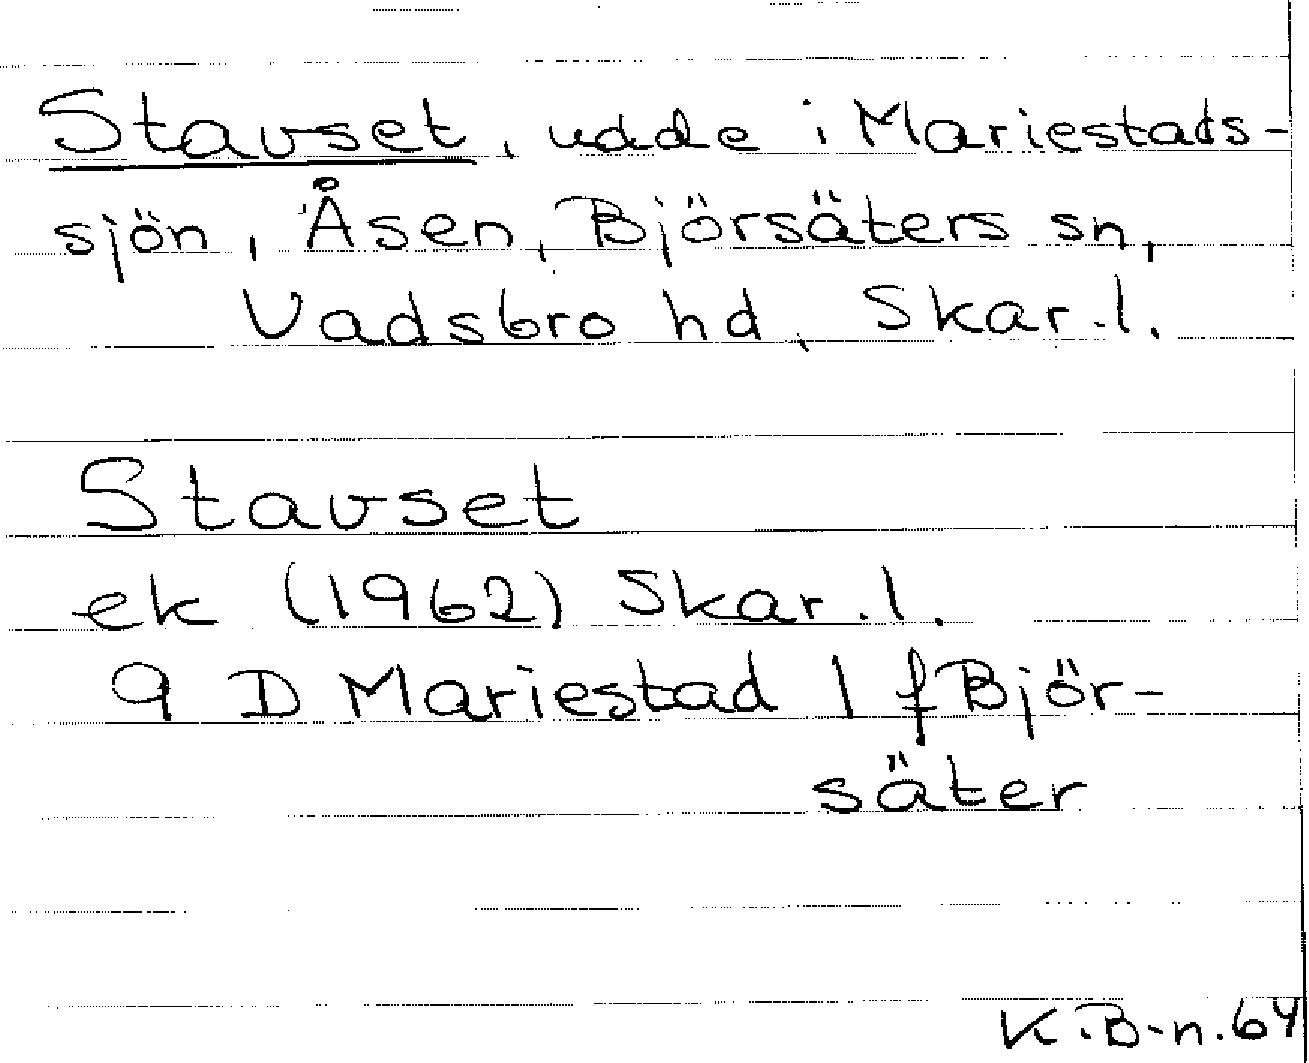 Stavset, udde i Mariestads-
sjön, Åsen, Björsäters sn,
Vadsbro hd, Skar.l.
Stavset
ek (1962) Skar.l.
9 D Mariestad l f Björ-
säter
K.B-n.64